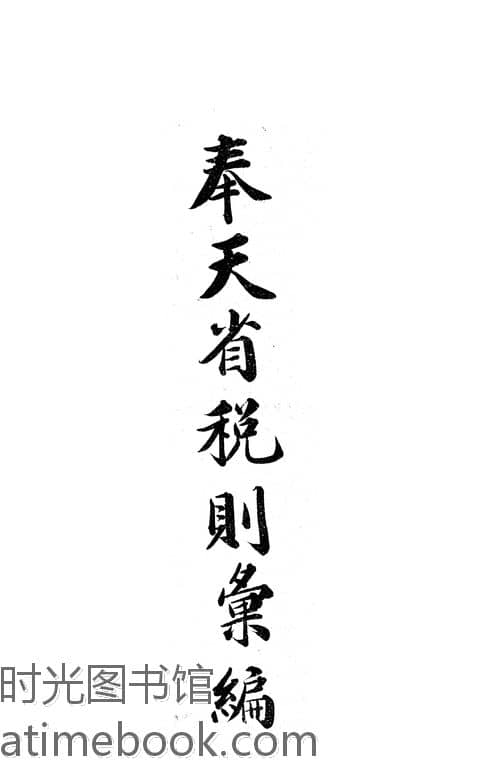 奉天省税則彙編
时光图书馆
atimebook.com